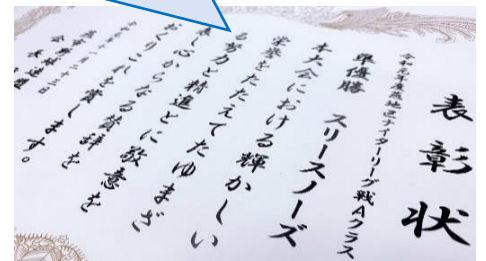 表彰状
令和元年度燕地区ナイターリーグ戦Aクラス
準優勝 スリースノーズ
本大会における輝かしい
栄誉をたたえてたゆまざ
る努力と精進とに敬意を
表し心からなる賛辞を
おくりこれを賞します。
令和元年十一月二十三日
会長